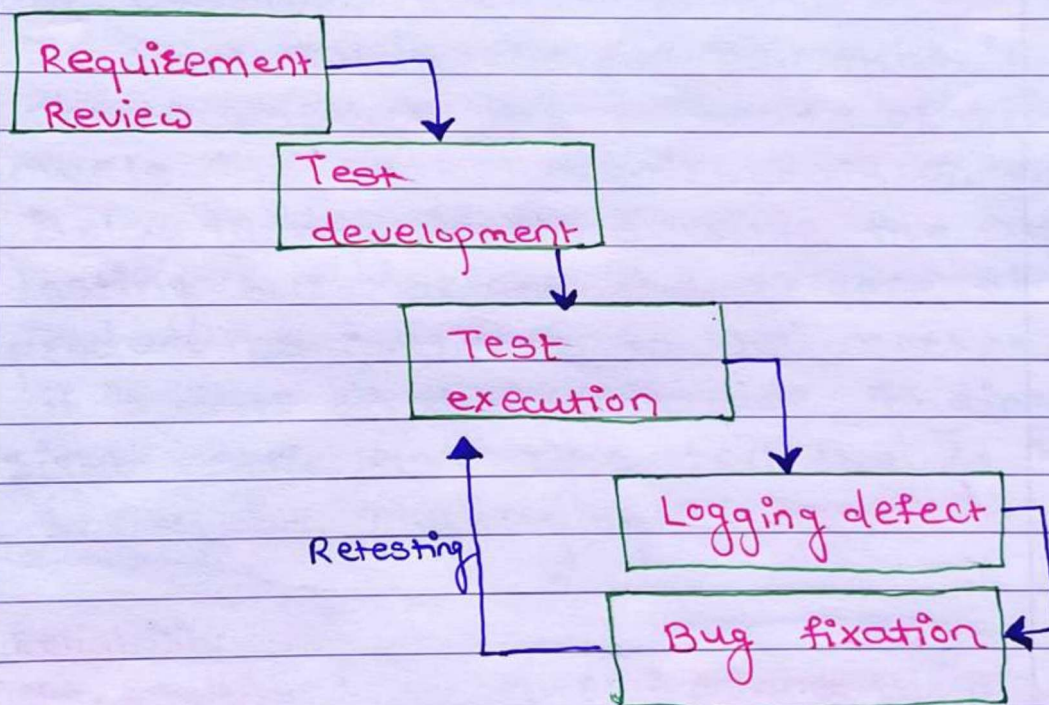 Requirement
Review
Test
development
Test
execution
Logging defect
Retesting
Bug fixation